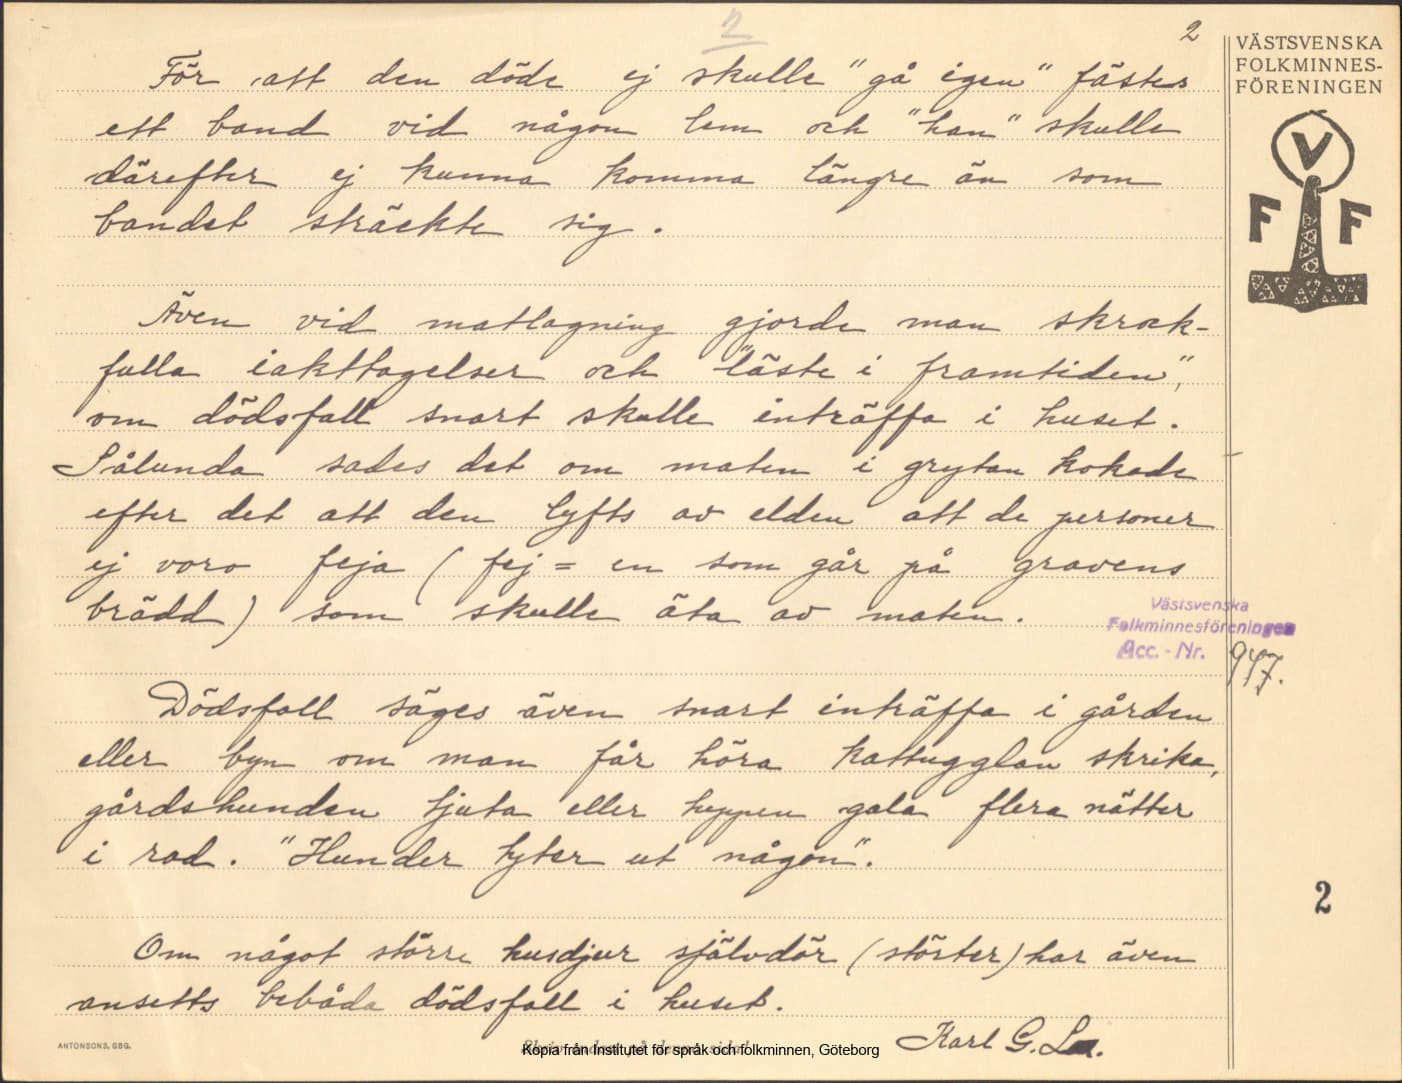 2
2
VÄSTSVENSKA
FOLKMINNES-
FÖRENINGEN
V
F F
För att den döde ej skulle "gå igen" fästes
ett band vid någon lem och "han" skulle
därefter ej kunna komma längre än som
bandet sträckte sig.
Även vid matlagning gjorde man skrock-
fulla iakttagelser och "läste i framtiden",
om dödsfall snart skulle inträffa i huset.
Sålunda sades det om maten i grytan kokade
efter det att den lyfts av elden att de personer
ej voro feja (fej = en som går på gravens
brädd) som skulle äta av maten.
Västsvenska
Folkminnesföreningen
Acc. - Nr. 947.
Dödsfall säges även snart inträffa i gården
eller byn om man får höra kattugglan skrika,
gårdshunden tjuta eller tuppen gala flera nätter
i rad. "Hunder tyter ut någon".
2
Om något större husdjur självdör (störter) har även
ansetts bebåda dödsfall i huset.
Karl G.
ANTONSONS, GBG.
Skriv endast på denna sida!
Kopia från Institutet för språk och folkminnen, Göteborg